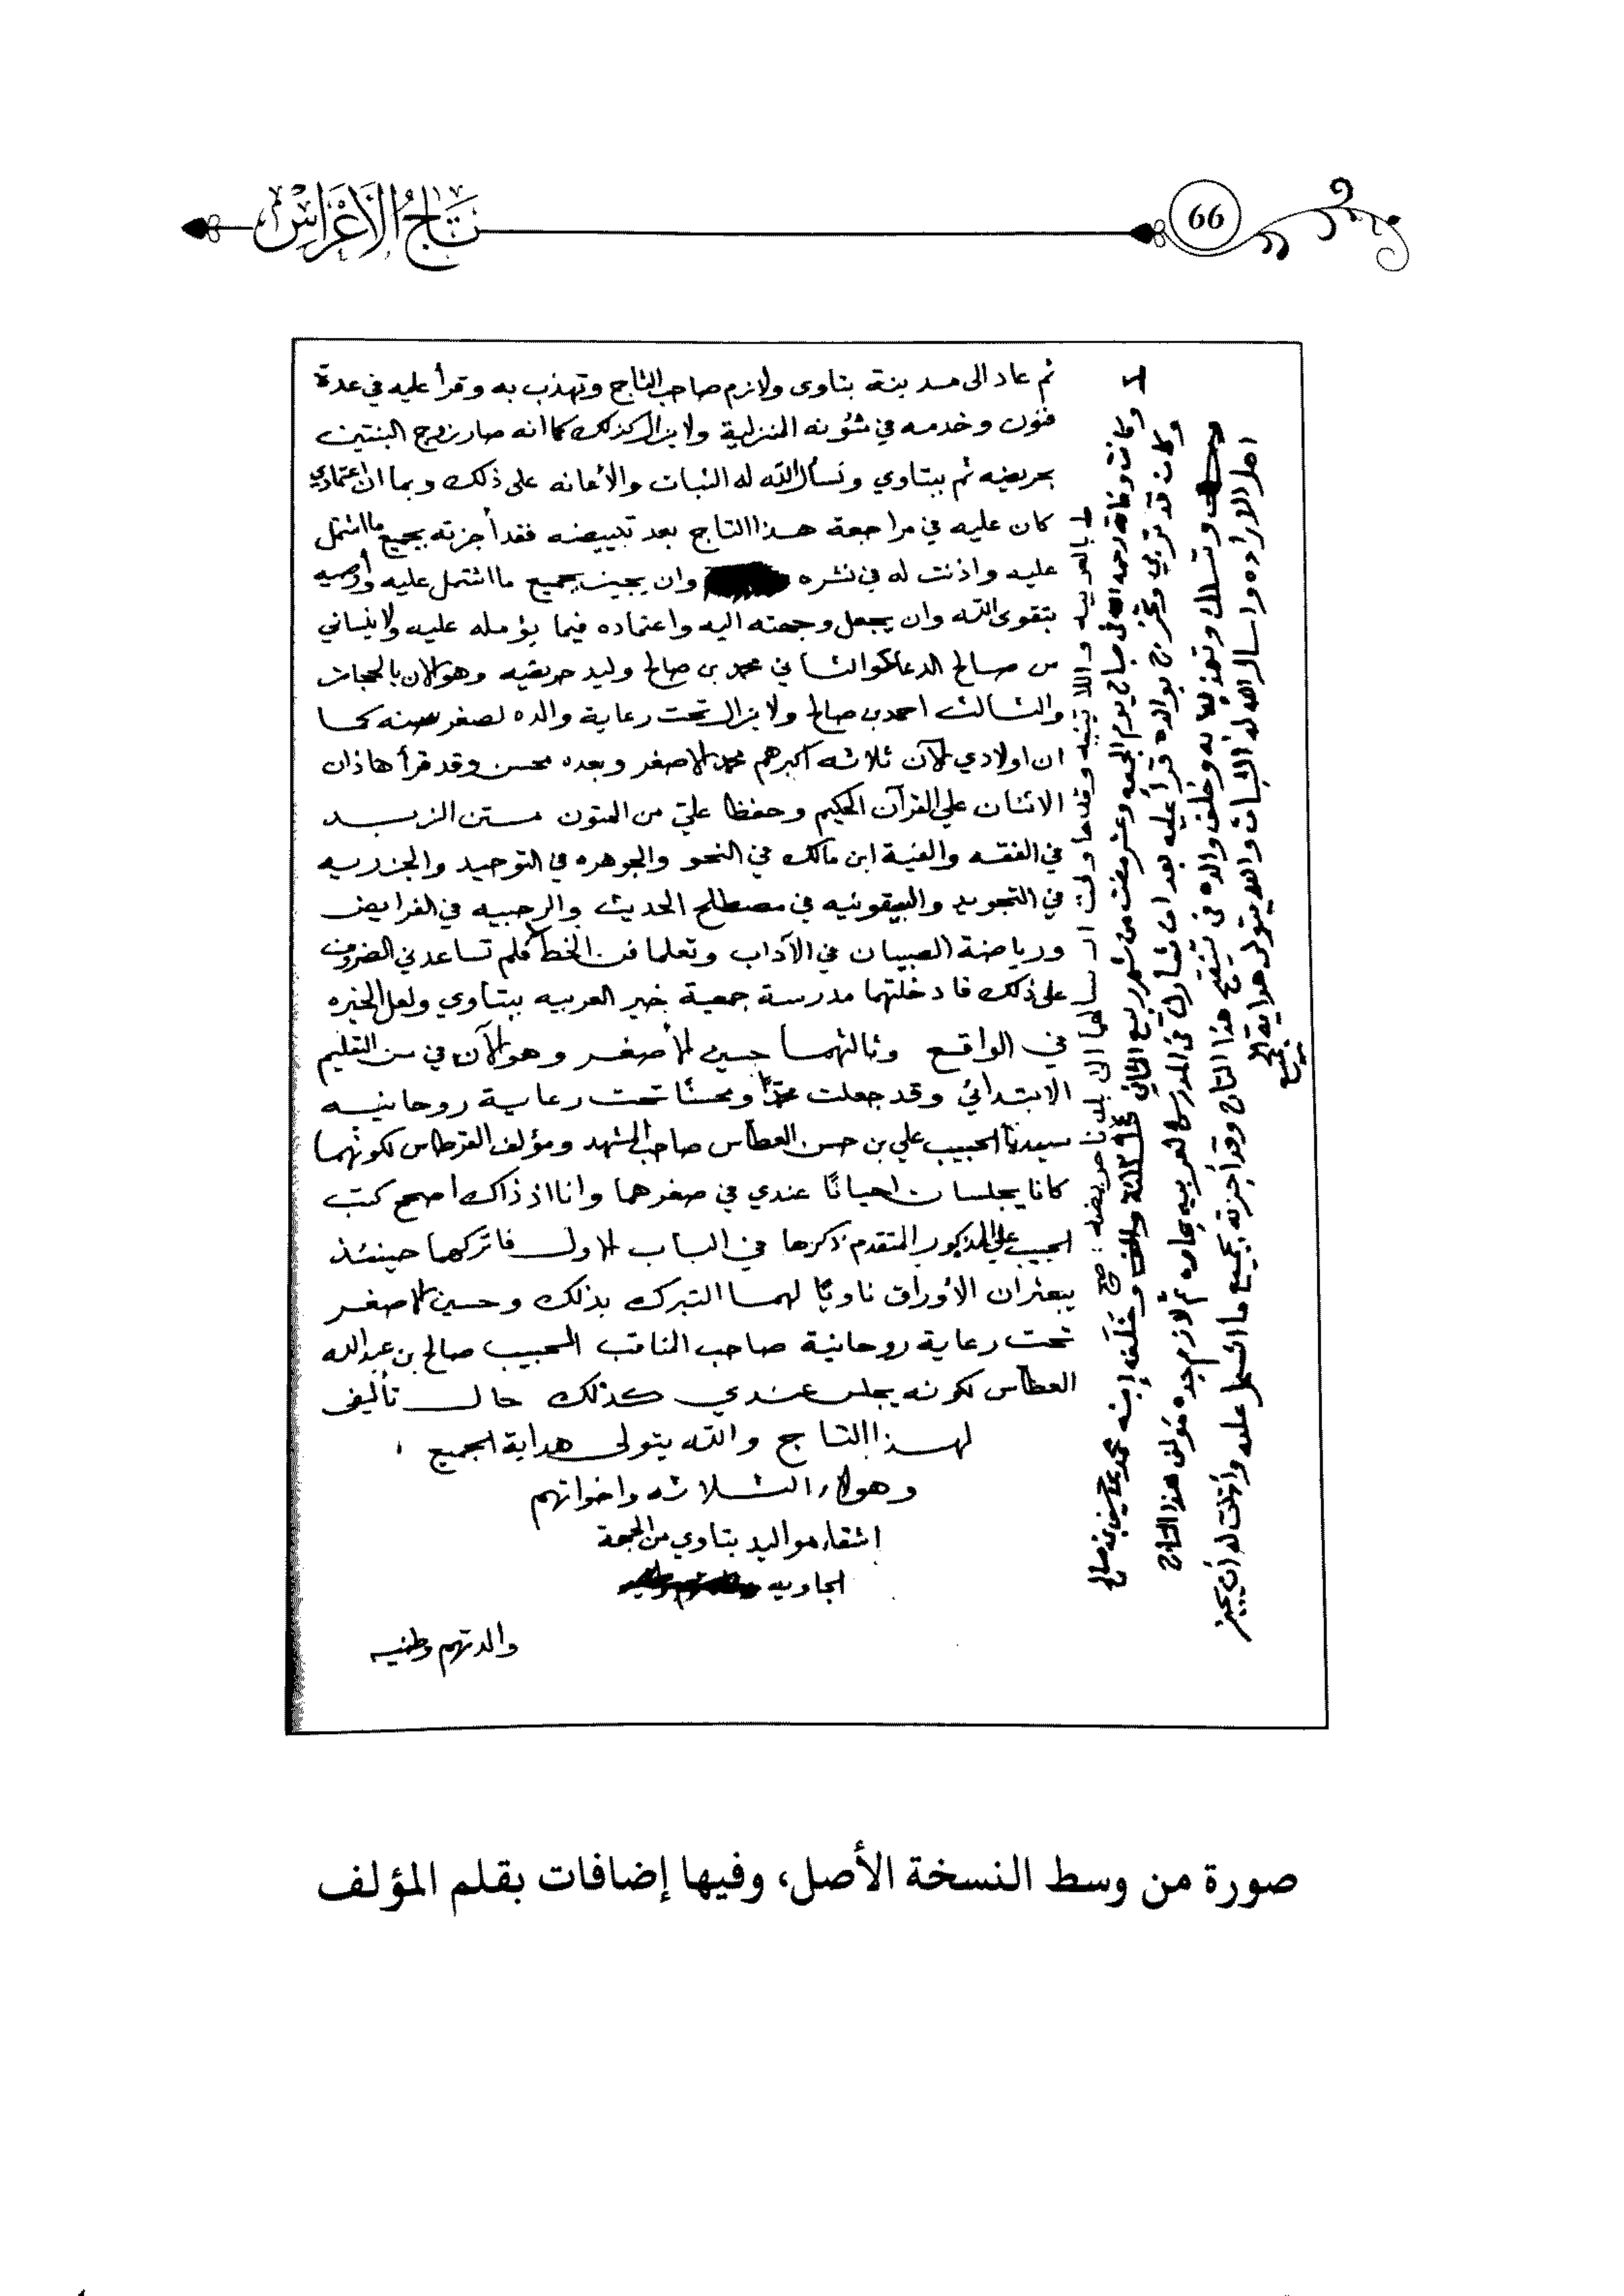 تَاجُ الأَعْرَاسْ
66
ثم عاد الى مدينة بتاوى ولازم صاحب التاج وتهذب به وقرأ عليه في عدة
فنون وخدمه في شئونه المنزلية ولا يزال كذلك كما انه صار زوج البنتين
بحريضه ثم ببتاوي ونسأل الله له الثبات والأعانه على ذلك وبما ان اعتمادي
كان عليه في مراجعة هذا التاج بعد تبييضه فقد أجزته بجميع ما اشتمل
عليه واذنت له في نشره وان يجيز بجميع ما اشتمل عليه وأوصيه
بتقوى الله وان يجعل وجهته اليه واعتماده فيما يؤمله عليه ولا ينساني
من صالح الدعا والثاني محمد بن صالح وليد حريضه وهو الآن بالحجاز
والثالث احمد بن صالح ولا يزال تحت رعاية والده لصغر سنه كما
ان اولادي الآن ثلاثه اكبرهم محمد الاصغر وبعده محسن وقد قرأ هاذان
الاثنان علي القرآن الحكيم وحفظا عليّ من المتون متن الزبد
في الفقه والفية ابن مالك في النحو والجوهره في التوحيد والجزريه
في التجويد والبيقونيه في مصطلح الحديث والرحبيه في الفرايض
ورياضة الصبيان في الآداب وتعلما فن الخط فلم تساعدني الضروف
على ذلك فادخلتهما مدرسة جمعية خير العربيه ببتاوي ولعل الخيره
في الواقع وثالثهما حسين الأصغر وهو الآن في سن التعليم
الابتدائي وقد جعلت محمدًا ومحسنًا تحت رعاية روحانيه
سيدنا الحبيب علي بن حسن العطاس صاحب المشهد ومؤلف القرطاس لكونهما
كانا يجلسان احيانًا عندي في صغرهما وانا اذ ذاك اصحح كتب
الحبيب علي المذكور المتقدم ذكرها في الباب الاول فاتركهما حينئذ
يبعثران الأوراق ناويًا لهما التبرك بذلك وحسين الاصغر
تحت رعاية روحانية صاحب المناقب الحبيب صالح بن عبدالله
العطاس لكونه يجلس عندي كذلك حال تأليفي
لهذا التاج والله يتولى هداية الجميع
وهولاء الثلاثه واخواتهم
اشقاء مواليد بتاوي من الجهة
الجاويه
والدتهم وطنيه
بالعربيه واللاتنيه وقد حاولت ارسالهما الى بلدنا حريضه : صح
وكانت وفاته رحمه الله في صباح يوم الجمعه وعشر مضت من شهر ربيع الثاني وخلف إبنه محمد بن محسن بن صالح
وكان قد تربي وتخرج بوالده قرأ عليه بعد ان شارك في المدرسة العربيه بجاوه ثم لازم جده مؤلف هذا التاج
وتسلك وتهذب به وخلف والده في تنقيح هذا التاج وقد أجزته بجميع ما اشتمل عليه وأذنت له أن يجيز
اهل الاراده واسال الله له الثبات والله يتولى هداية الجميع
صورة من وسط النسخة الأصل، وفيها إضافات بقلم المؤلف